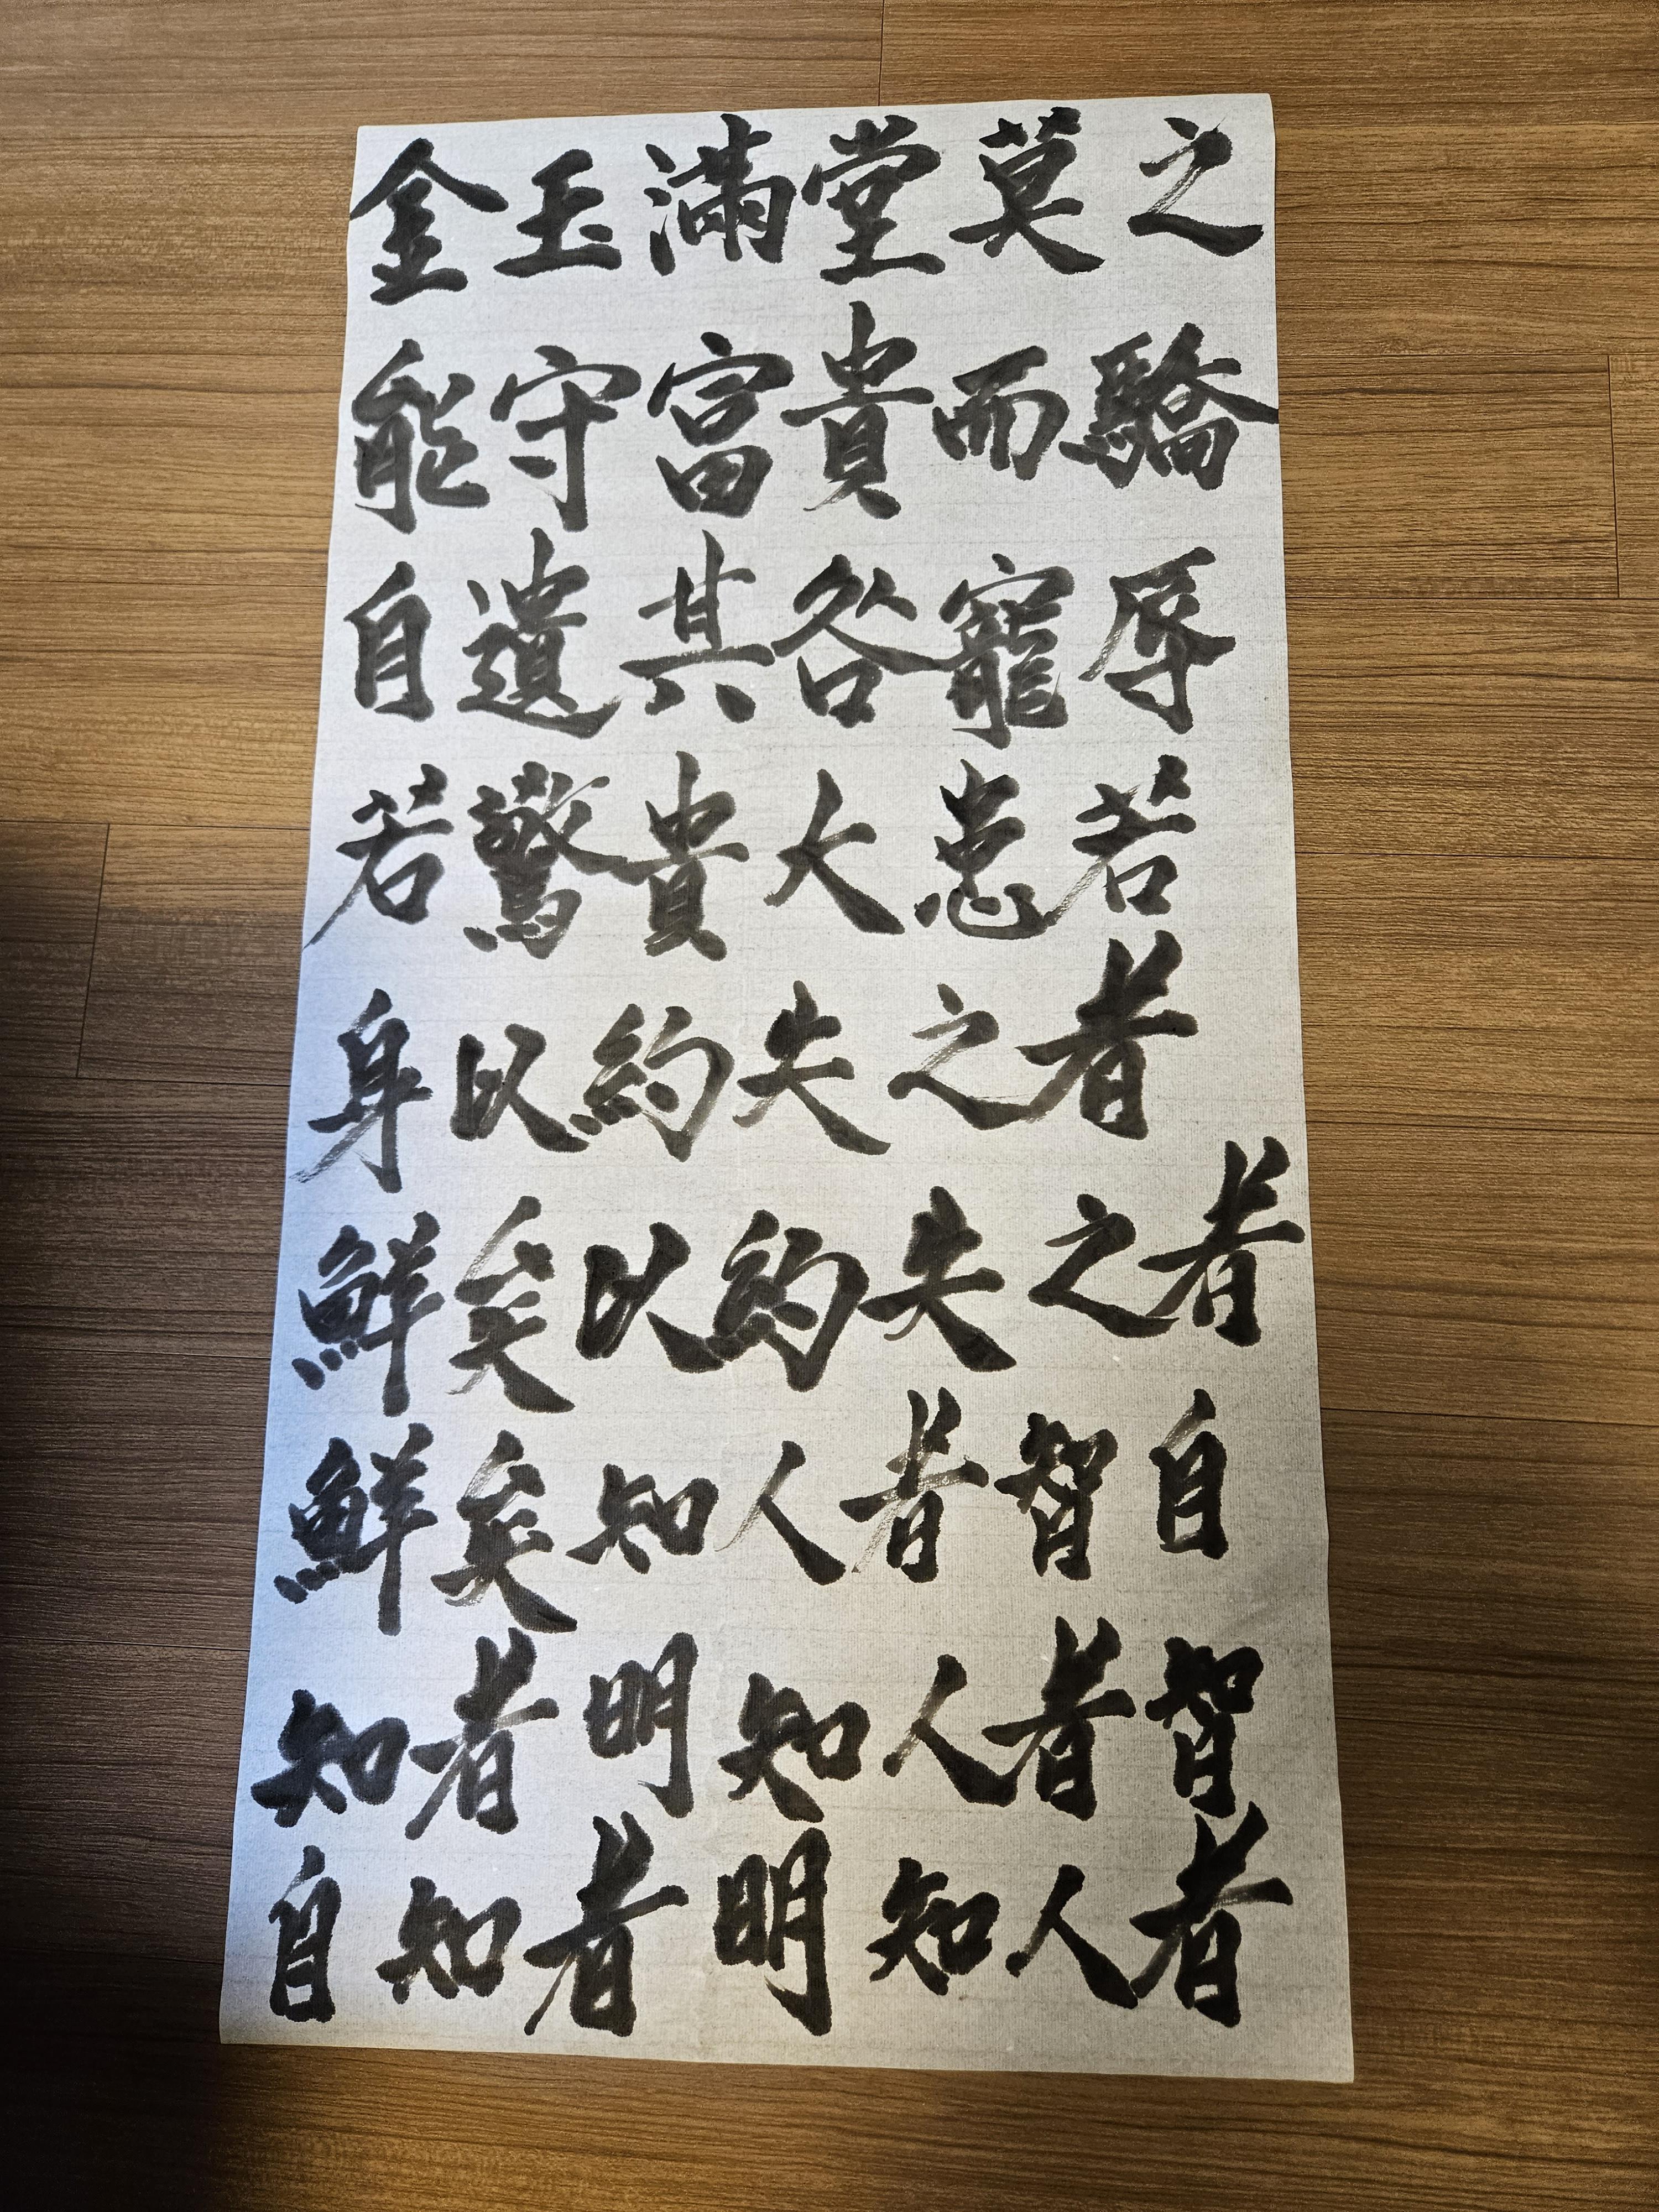 金玉滿堂莫之
能守富貴而驕
自遺其咎寵辱
若驚貴大患若
身以約失之者
鮮矣以約失之者
鮮矣知人者智自
知者明知人者智
自知者明知人者